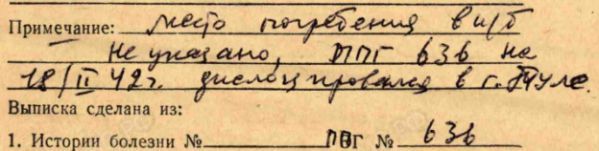 Примечание: место погребения в и/б
не указано, ППГ 636 на
18/II 42 г. дислоцировался в г. Туле.
Выписка сделана из:
1. Истории болезни № ППГ № 636